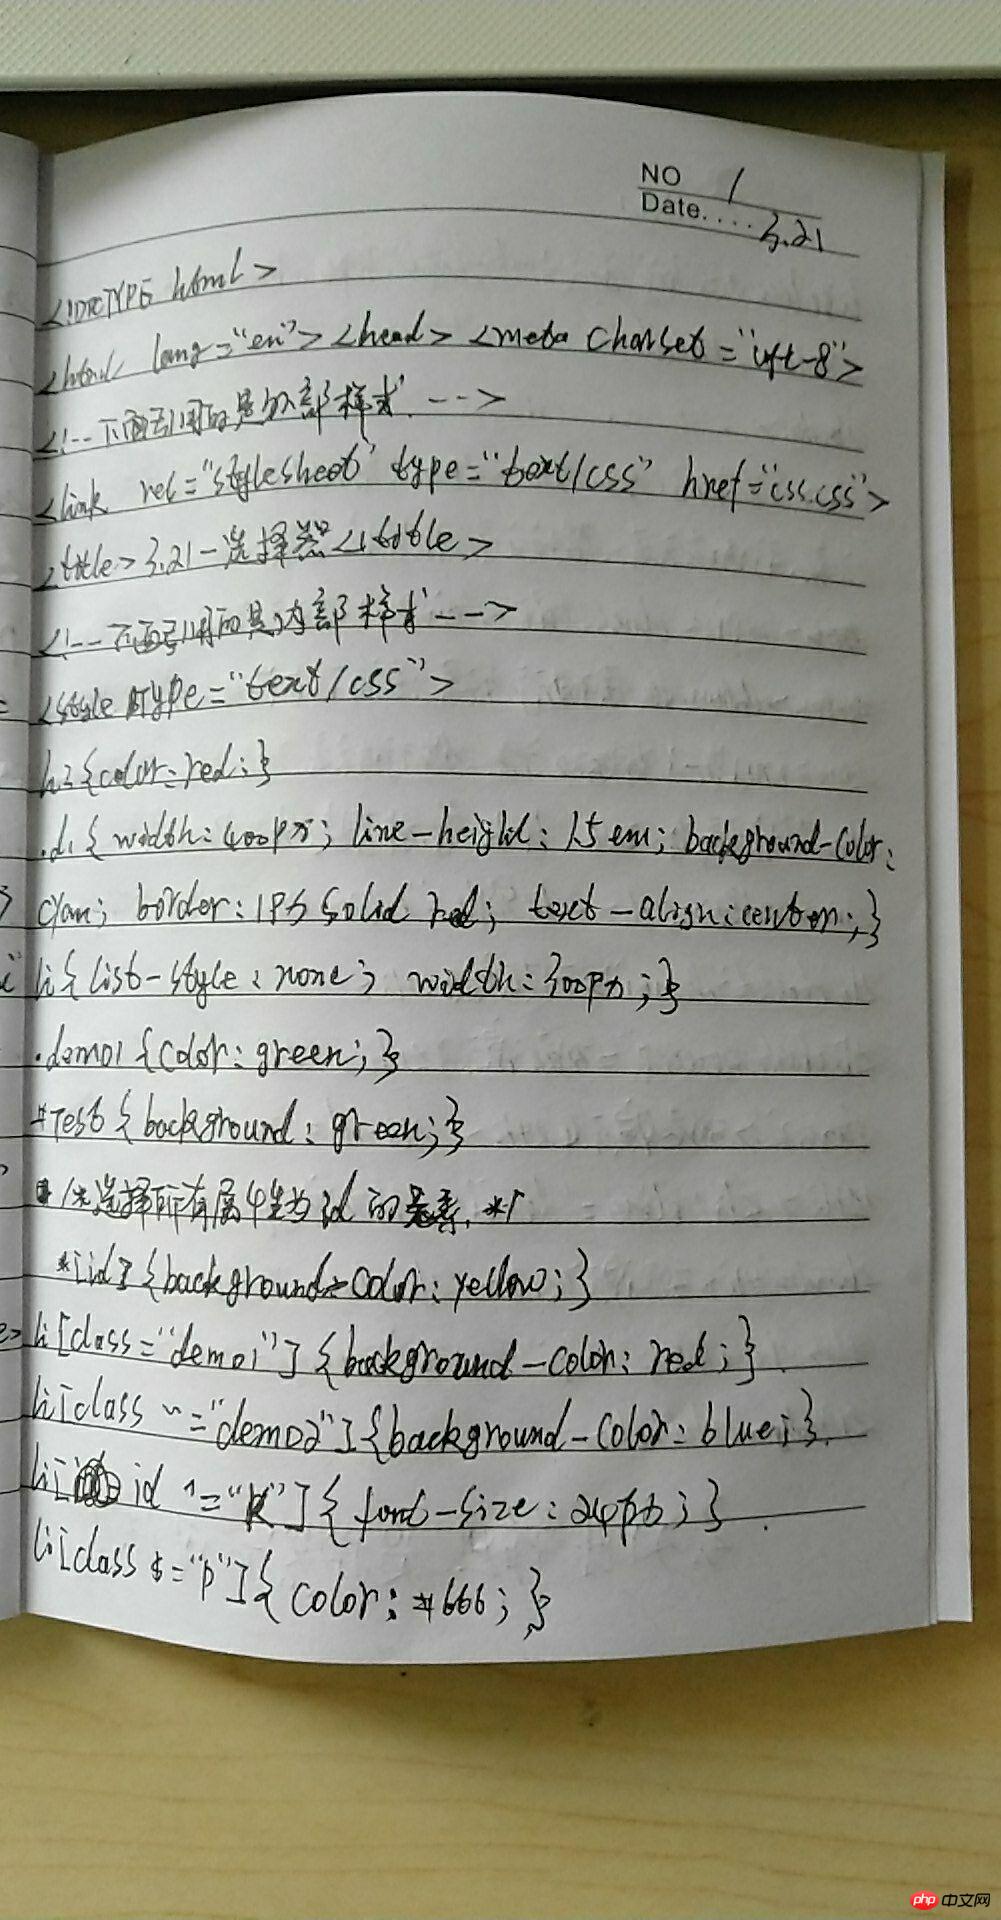 NO 1
Date.... 3.21
<!DOCTYPE html>
<html lang="en"><head><meta charset="uft-8">
<!--下面引用的是外部样式--->
<link rel="stylesheet" type="text/css" href="css.css">
<title>3.21-选择器</title>
<!--下面引用的是内部样式--->
<style type="text/css">
h2{color:red;}
.d1{width:400px; line-height:1.5em; background-color:
cyan; border:1px solid red; text-align:center;}
li{list-style:none; width:300px;}
.demo1{color:green;}
#Test{background:green;}
/*选择所有属性为id的元素.*/
*[id]{background-color:yellow;}
li[class="demo1"]{background-color:red;}
li[class~="demo2"]{background-color:blue;}
li[id^="k"]{font-size:24px;}
li[class$="p"]{color:#666;}
php 中文网